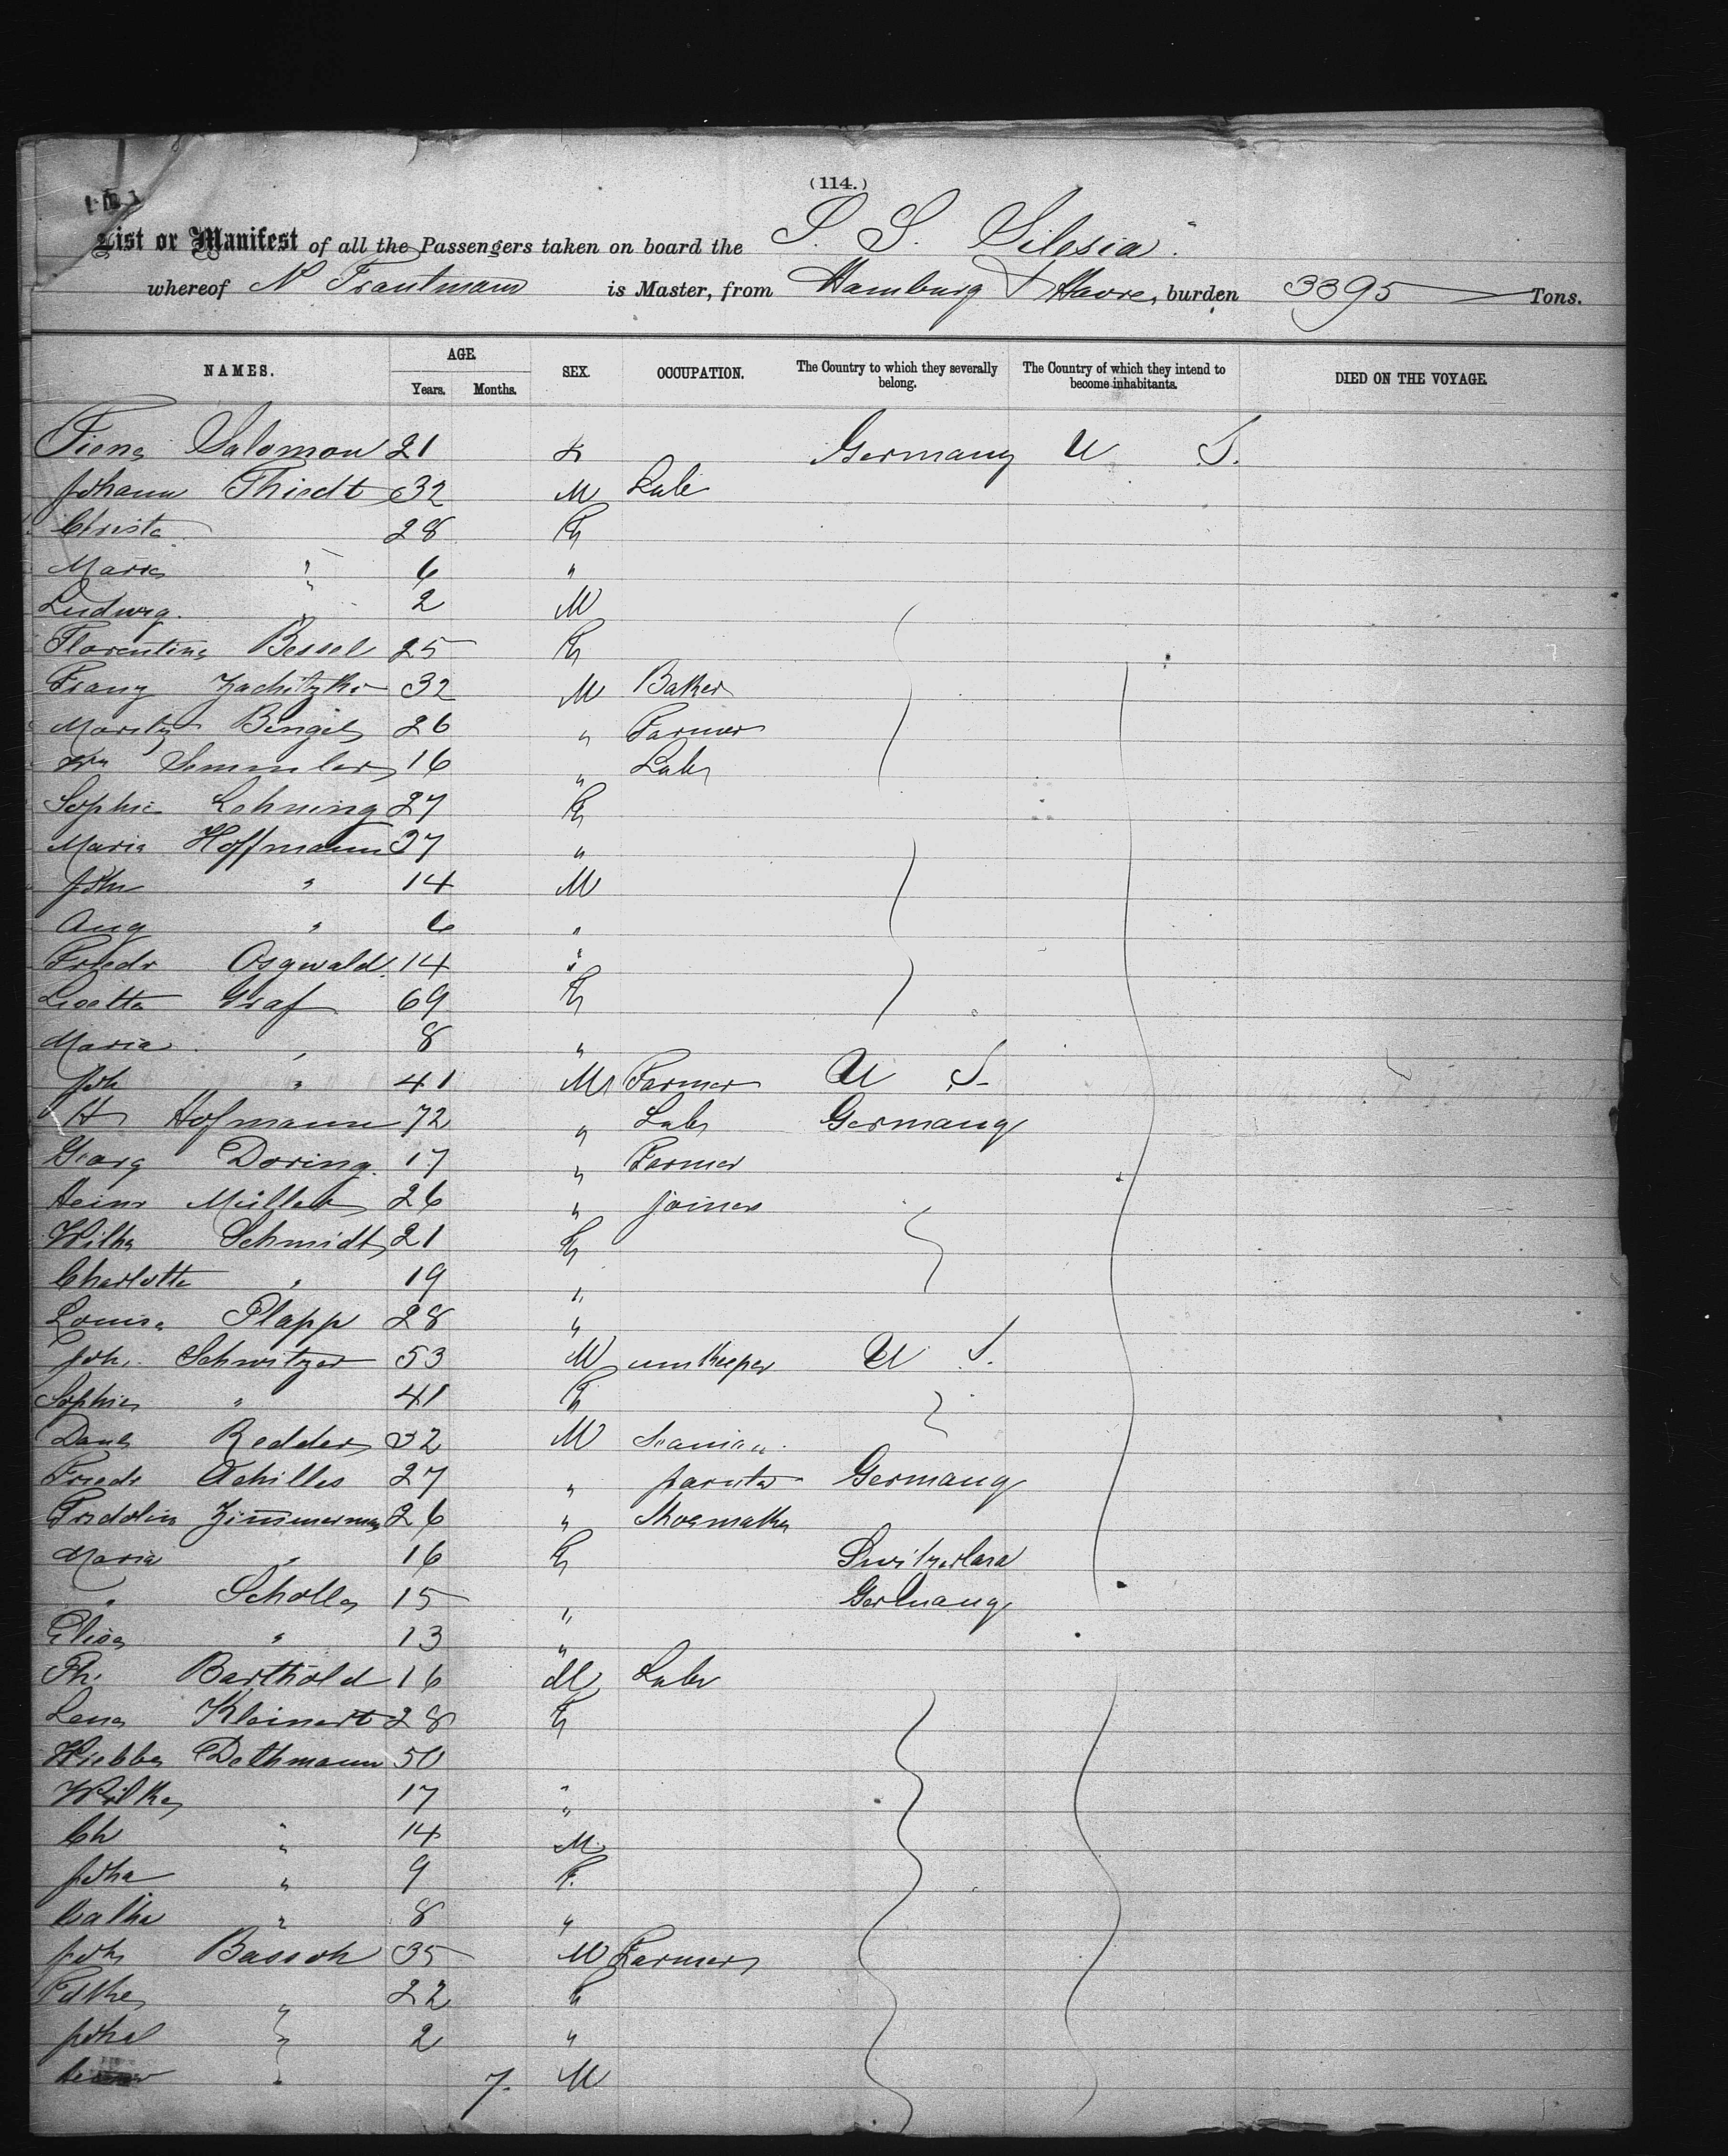 (114.)
List or Manifest of all the Passengers taken on board the S. S. Silesia
whereof N Trautmann is Master, from Hamburg & Havre, burden 3395 Tons.
NAMES. AGE. SEX. OCCUPATION. The Country to which they severally belong. The Country of which they intend to become inhabitants. DIED ON THE VOYAGE.
Years. Months.
Salomon 21 Germany U S.
Johann Thiedt 32 M Labr
Christe 28 F
Maria " 6 "
Ludwig " 2 M
Florentine Bessel 25 F
Franz 32 M Baker
Moritz Bengel 26 " Farmer
Wm Semmler 16 " Labr
Sophie Lehning 27 F
Maria Hoffmann 37 "
John " 14 M
Aug " 6 "
Friedr Osgwald 14 "
Lisette Graf 69 F
Maria " 8 "
Joh " 41 M Farmer U S.
H Hofmann 72 " Labr Germany
Georg Doring 17 " Farmer
Heinr Müller 26 " joiner
Wilhe Schmidt 21 F
Charlotte " 19 "
Louise Plapp 28 "
Joh. Schwitzer 53 M U S.
Sophie " 41 F
Redder 32 M Seaman
Friedr Achilles 27 " Germany
Fridolin Zimmerman 26 " Shoemaker
Maria " 16 F Switzerland
" Scholl 15 " Germany
Elise " 13 "
Ph. Barthold 16 M Labr
Lena Kleinert 28 F
Wiebke Dethmann 50
Wilhe 17 "
Ch " 14 M
Joha " 9 F.
Catha " 8 "
Joh Bassoh 35 M Farmer
22 F
Joha " 2 "
" 7. M